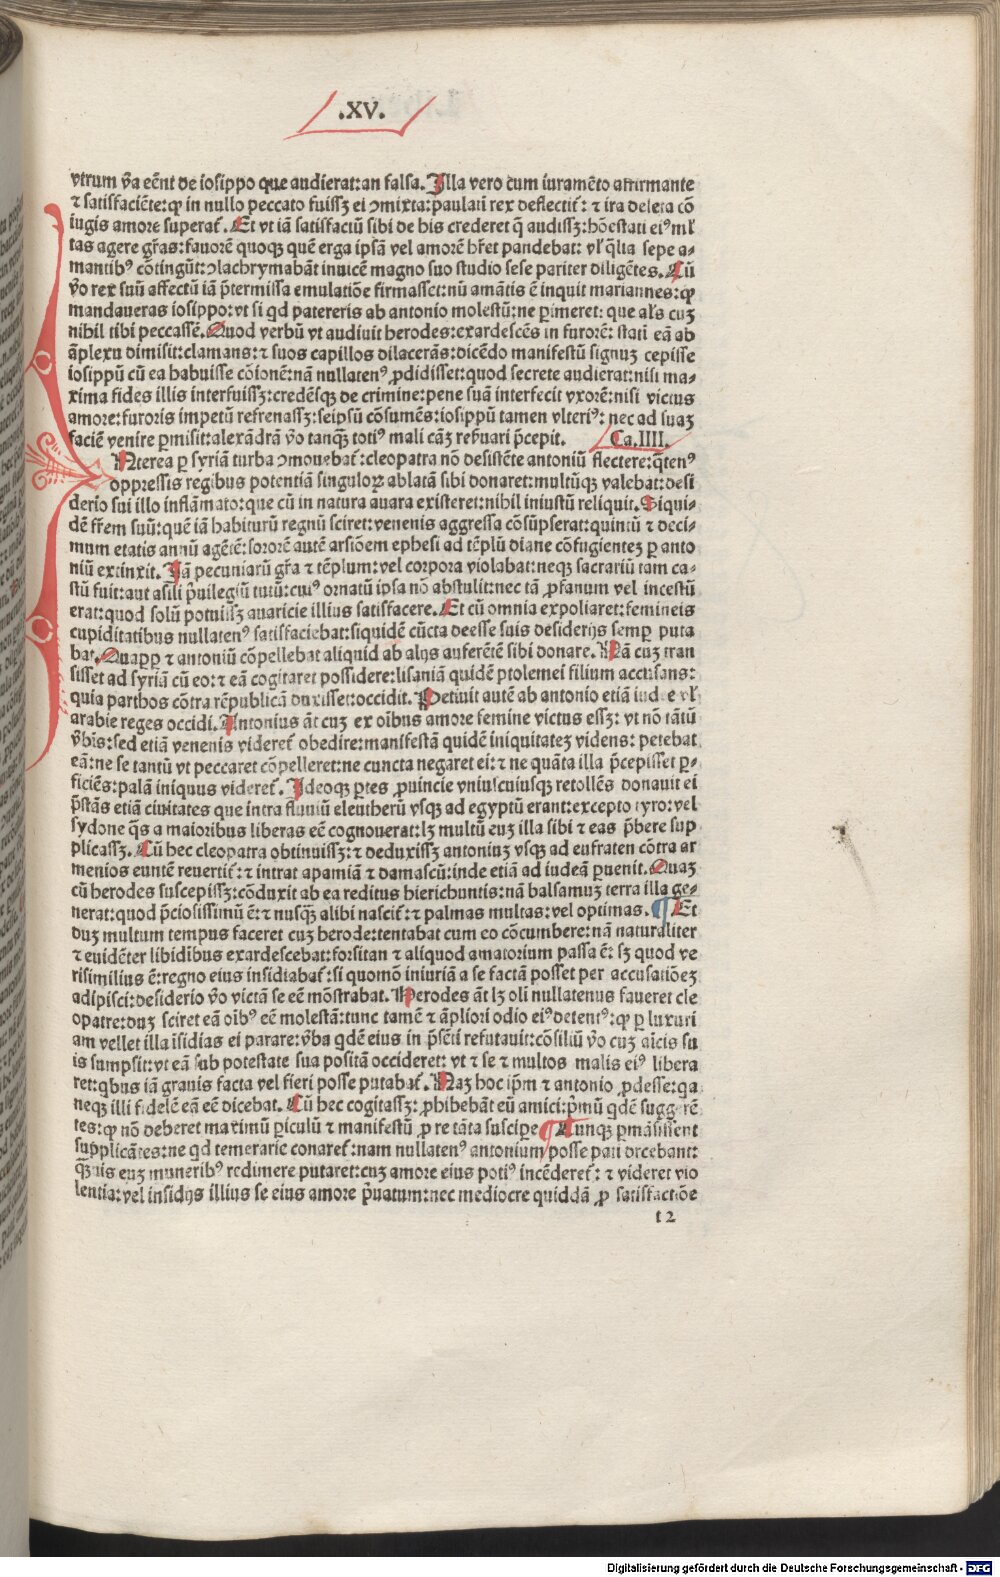 .XV.
vtrum v̄a eēnt de iosippo que audierat:an falsa. Illa vero cum iuramēto affirmante
⁊ satisfaciēte:ꝙ in nullo peccato fuissꝫ ei ꝯmixta:paulati rex deflectit᷑: ⁊ ira deleta cō
iugis amore superat᷑. Et vt iā satisfactū sibi de his crederet q̄ audissꝫ:hōestati eiꝰ ml᷑
tas agere gr̄as:fauorē quoqꝫ quē erga ipsā vel amorē hr̄et pandebat: vl᷑ q̄lia sepe a-
mantibꝰ cōtingūt:ꝯlachrymabāt inuicē magno suo studio sese pariter diligētes. Cū
v̄o rex suū affectū iā p̄termissa emulatiōe firmasset:nū amātis ē inquit mariannes:ꝙ
mandaueras iosippo:vt si qd patereris ab antonio molestū:ne ꝑimeret: que al᷑s cuꝫ
nihil tibi peccassē. Quod verbū vt audiuit herodes:exardescēs in furorē: stati eā ab
āplexu dimisit:clamans:⁊ suos capillos dilacerās:dicēdo manifestū signuꝫ cepisse
iosippū cū ea habuisse cōionē:nā nullatenꝰ ꝓdidisset:quod secrete audierat:nisi ma-
xima fides illis interfuissꝫ:credēsqꝫ de crimine:pene suā interfecit vxorē:nisi victus
amore:furoris impetū refrenassꝫ:seipsū cōsumēs:iosippū tamen vlteriꝰ: nec ad suaꝫ
faciē venire ꝑmisit:alexādrā v̄o tanqꝫ̄ totiꝰ mali cāꝫ reẜuari p̄cepit. Ca.IIII.
Nterea ꝑ syriā turba ꝯmouebat᷑:cleopatra nō desistēte antoniū flectere:q̄tenꝰ
oppressis regibus potentiā singuloꝝ ablatā sibi donaret:multūqꝫ valebat:desi
derio sui illo inflāmato:que cū in natura auara existeret:nihil iniustū reliquit. Siqui-
dē fr̄em suū:quē iā habiturū regnū sciret:venenis aggressa cōsūpserat:quintū ⁊ deci-
mum etatis annū agētē:sororē autē arsiōem ephesi ad tēplū diane cōfugienteꝫ ꝑ anto
niū extinxit. Nā pecuniarū gr̄a ⁊ tēplum:vel corpora violabat:neqꝫ sacrariū tam ca-
stū fuit:aut asili p̄uilegiū tutū:cuiꝰ ornatū ipsa nō abstulit:nec tā ꝓfanum vel incestū
erat:quod solū potuissꝫ auaricie illius satisfacere. Et cū omnia expoliaret:femineis
cupiditatibus nullatenꝰ satisfaciebat:siquidē cūcta deesse suis desiderijs semꝑ puta
bat. Quaꝓꝑ ⁊ antoniū cōpellebat aliquid ab alijs auferētē sibi donare. Nā cuꝫ tran
sisset ad syriā cū eo:⁊ eā cogitaret possidere:lisaniā quidē ptolemei filium accusans:
quia parthos cōtra rēpublicā duxisset:occidit. Petiuit autē ab antonio etiā iudee vl᷑
arabie reges occidi. Antonius āt cuꝫ ex oībus amore femine victus essꝫ: vt nō tātū
v̄bis:sed etiā venenis videret᷑ obedire:manifestā quidē iniquitateꝫ videns: petebat
eā:ne se tantū vt peccaret cōpelleret:ne cuncta negaret ei:⁊ ne quāta illa p̄cepisset ꝑ-
ficiēs:palā iniquus videret᷑. Ideoqꝫ ꝑtes ꝓuincie vniuscuiusqꝫ retollēs donauit ei
p̄stās etiā ciuitates que intra fluuiū eleutherū vsqꝫ ad egyptū erant:excepto tyro:vel
sydone q̄s a maioribus liberas eē cognouerat:lꝫ multū euꝫ illa sibi ⁊ eas p̄bere sup
plicassꝫ. Cū hec cleopatra obtinuissꝫ:⁊ deduxissꝫ antoniuꝫ vsqꝫ ad eufraten cōtra ar
menios euntē reuertit᷑:⁊ intrat apamiā ⁊ damascū:inde etiā ad iudeā ꝑuenit. Quaꝫ
cū herodes suscepissꝫ:cōduxit ab ea reditus hierichuntis:nā balsamuꝫ terra illa ge-
nerat:quod p̄ciosissimū ē:⁊ nusqꝫ̄ alibi nascit᷑:⁊ palmas multas:vel optimas. ¶ Et
duꝫ multum tempus faceret cuꝫ herode:tentabat cum eo cōcumbere:nā naturaliter
⁊ euidēter libidībus exardescebat:forsitan ⁊ aliquod amatorium passa ē: sꝫ quod ve
risimilius ē:regno eius insidiabat᷑:si quomō iniuriā a se factā posset per accusatiōeꝫ
adipisci:desiderio v̄o victā se eē mōstrabat. Herodes āt lꝫ oli nullatenus faueret cle
opatre:duꝫ sciret eā oībꝰ eē molestā:tunc tamē ⁊ āpliori odio eiꝰ detentꝰ:ꝙ ꝑ luxuri
am vellet illa īsidias ei parare:v̄ba qdē eius in p̄sēti refutauit:cōsiliū v̄o cuꝫ aīcis su
is sumpsit:vt eā sub potestate sua positā occideret: vt ⁊ se ⁊ multos malis eiꝰ libera
ret:qbus iā grauis facta vel fieri posse putabat᷑. Naꝫ hoc ip̄m ⁊ antonio ꝓdesse:qa
neqꝫ illi fidelē eā eē dicebat. Cū hec cogitassꝫ:ꝓhibebāt eū amici:p̄mū qdē suggerē
tes:ꝙ nō deberet maximū periculū ⁊ manifestū ꝓ re tāta suscipe ¶ Tunqꝫ ꝑmāsissent
supplicātes:ne qd temerarie conaret᷑:nam nullatenꝰ antonium posse pati dicebant:
qꝫ̄uis euꝫ muneribꝰ redimere putaret:cuꝫ amore eius potiꝰ incēderet᷑: ⁊ videret vio
lentia:vel insidijs illius se eius amore p̄uatum:nec mediocre quiddā ꝓ satisfactiōe
t 2
Digitalisierung gefördert durch die Deutsche Forschungsgemeinschaft - DFG